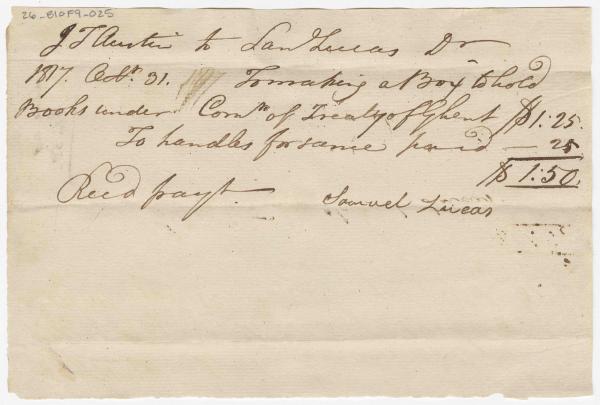 26_B10F9_025
J T Austin to Saml Lucas Dr
1817. Octr. 31. To making a Box to hold
Books under Comn of Treaty of Ghent $1:25.
To handles for same paid — 25
$ 1:50.
Recd payt.
Samuel Lucas